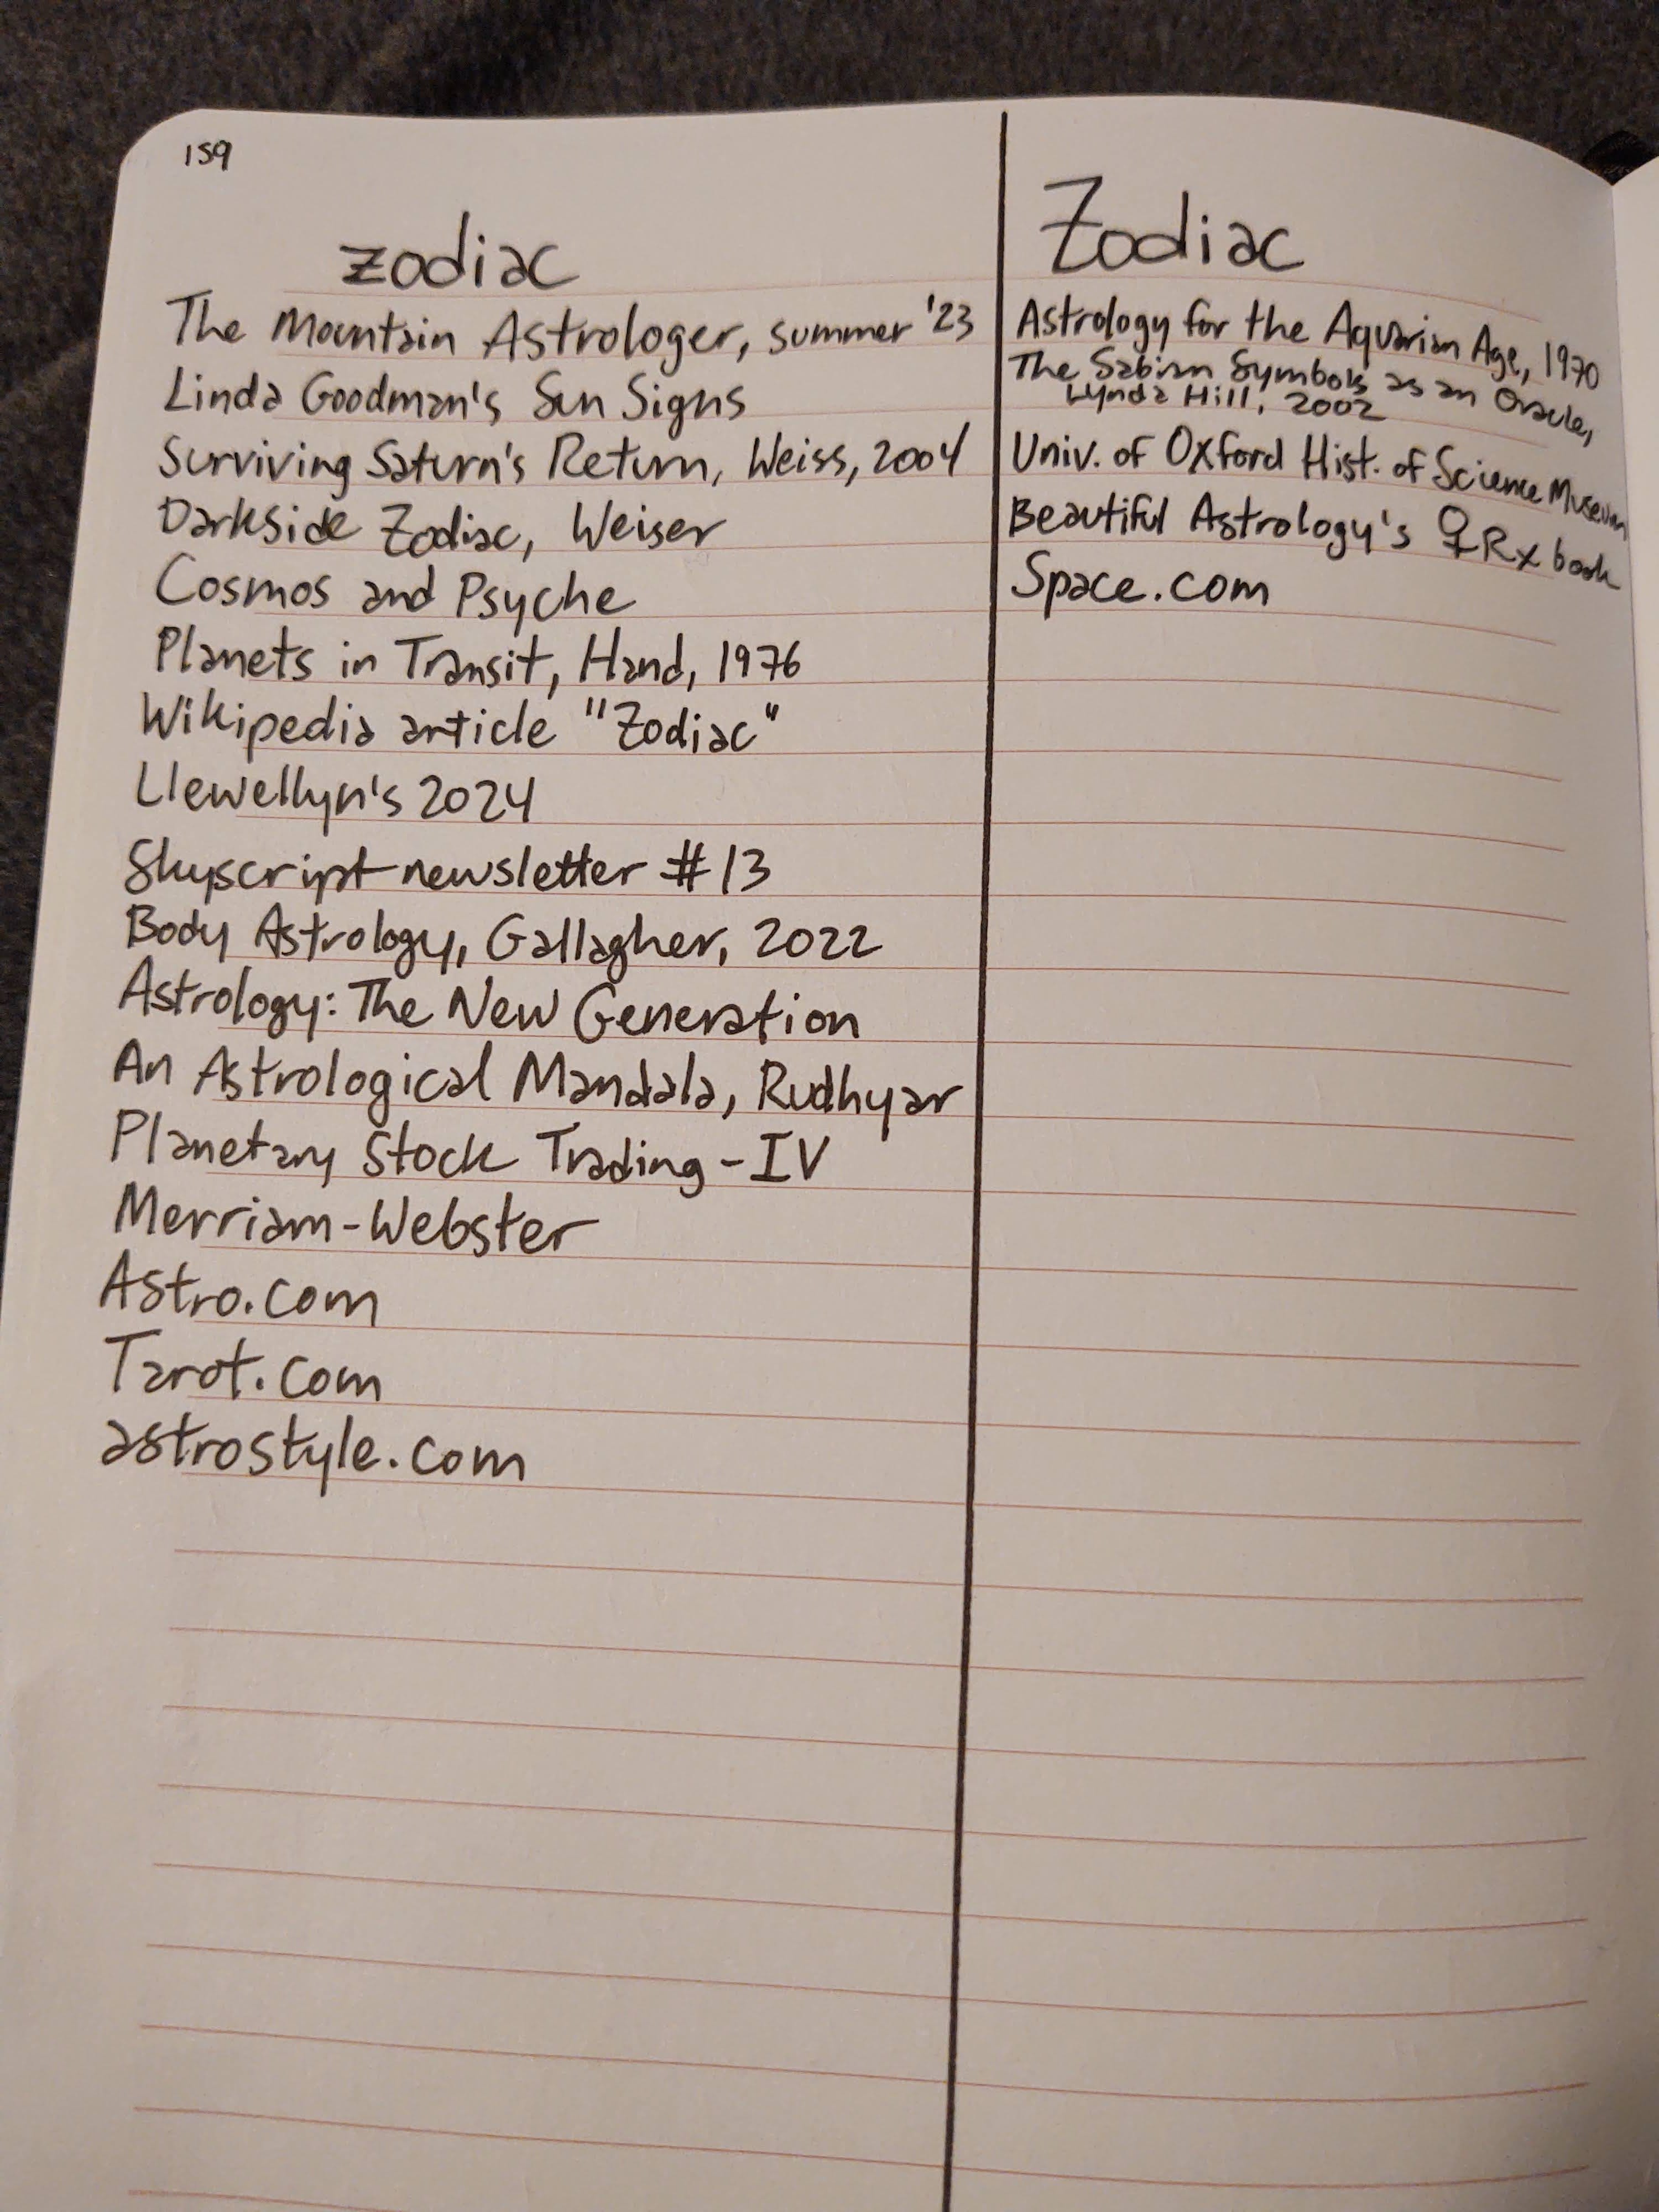 159
zodiac
The Mountain Astrologer, summer '23
Linda Goodman's Sun Signs
Surviving Saturn's Return, Weiss, 2004
Darkside Zodiac, Weiser
Cosmos and Psyche
Planets in Transit, Hand, 1976
Wikipedia article "Zodiac"
Llewellyn's 2024
Skyscript newsletter #13
Body Astrology, Gallagher, 2022
Astrology: The New Generation
An Astrological Mandala, Rudhyar
Planetary Stock Trading-IV
Merriam-Webster
Astro.com
Tarot.com
astrostyle.com
Zodiac
Astrology for the Aquarian Age, 1970
The Sabian Symbols as an Oracle,
Lynda Hill, 2002
Univ. of Oxford Hist. of Science Museum
Beautiful Astrology's ♀Rx book
Space.com